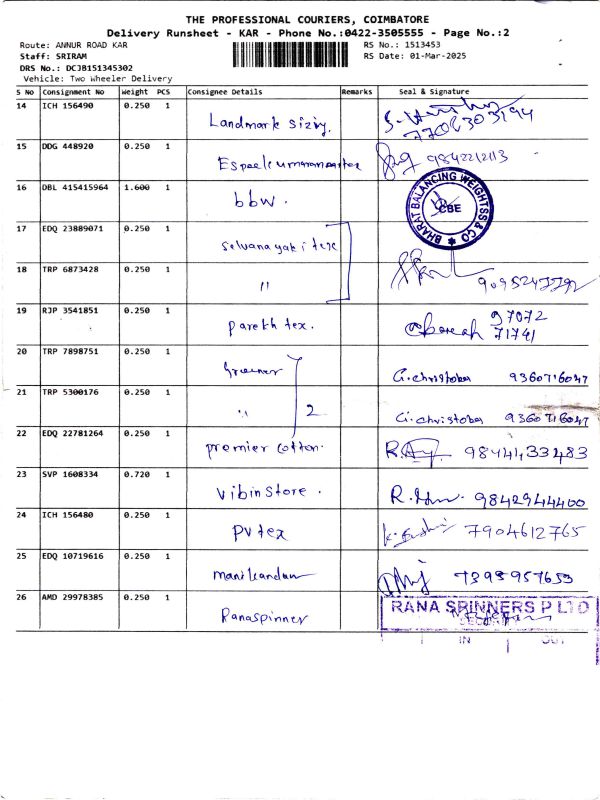 THE PROFESSIONAL COURIERS, COIMBATORE
Delivery Runsheet - KAR - Phone No.:0422-3505555 - Page No.:2
Route: ANNUR ROAD KAR RS No.: 1513453
Staff: SRIRAM RS Date: 01-Mar-2025
DRS No.: DCJB151345302
Vehicle: Two Wheeler Delivery
S No Consignment No Weight PCS Consignee Details Remarks Seal & Signature
14 ICH 156490 0.250 1 Landmark
15 DDG 448920 0.250 1
16 DBL 415415964 1.600 1 bbw. BHARAT BALANCING WEIGHTSS & CO CBE
17 EDQ 23889071 0.250 1 Selvanayaki tex
18 TRP 6873428 0.250 1 "
19 RJP 3541851 0.250 1 parekh tex. 97072
71741
20 TRP 7898751 0.250 1 G.christober 9360716047
21 TRP 5300176 0.250 1 " 2 G.christober 9360716047
22 EDQ 22781264 0.250 1 premier cotton. 9844133483
23 SVP 1608334 0.720 1 vibin Store. 9842944400
24 ICH 156480 0.250 1 PV tex 7904612765
25 EDQ 10719616 0.250 1 manikandan
26 AMD 29978385 0.250 1 Ranaspinner RANA SPINNERS P LTD
SECURITY
IN OUT